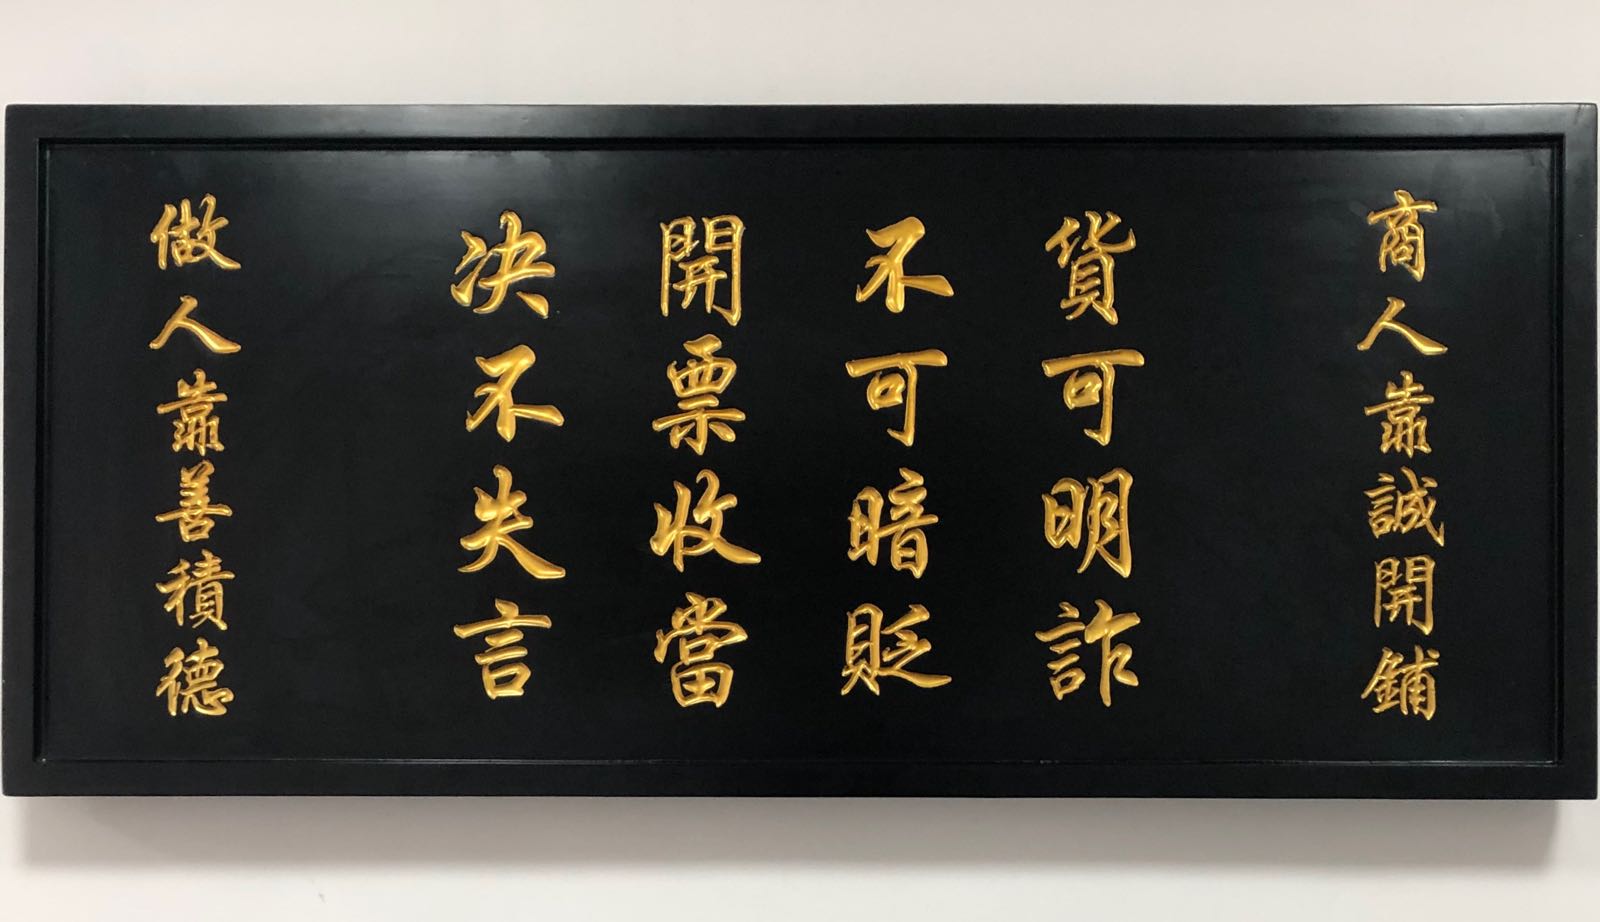 商人靠誠開鋪
貨可明詐
不可暗貶
開票收當
决不失言
做人靠善積德